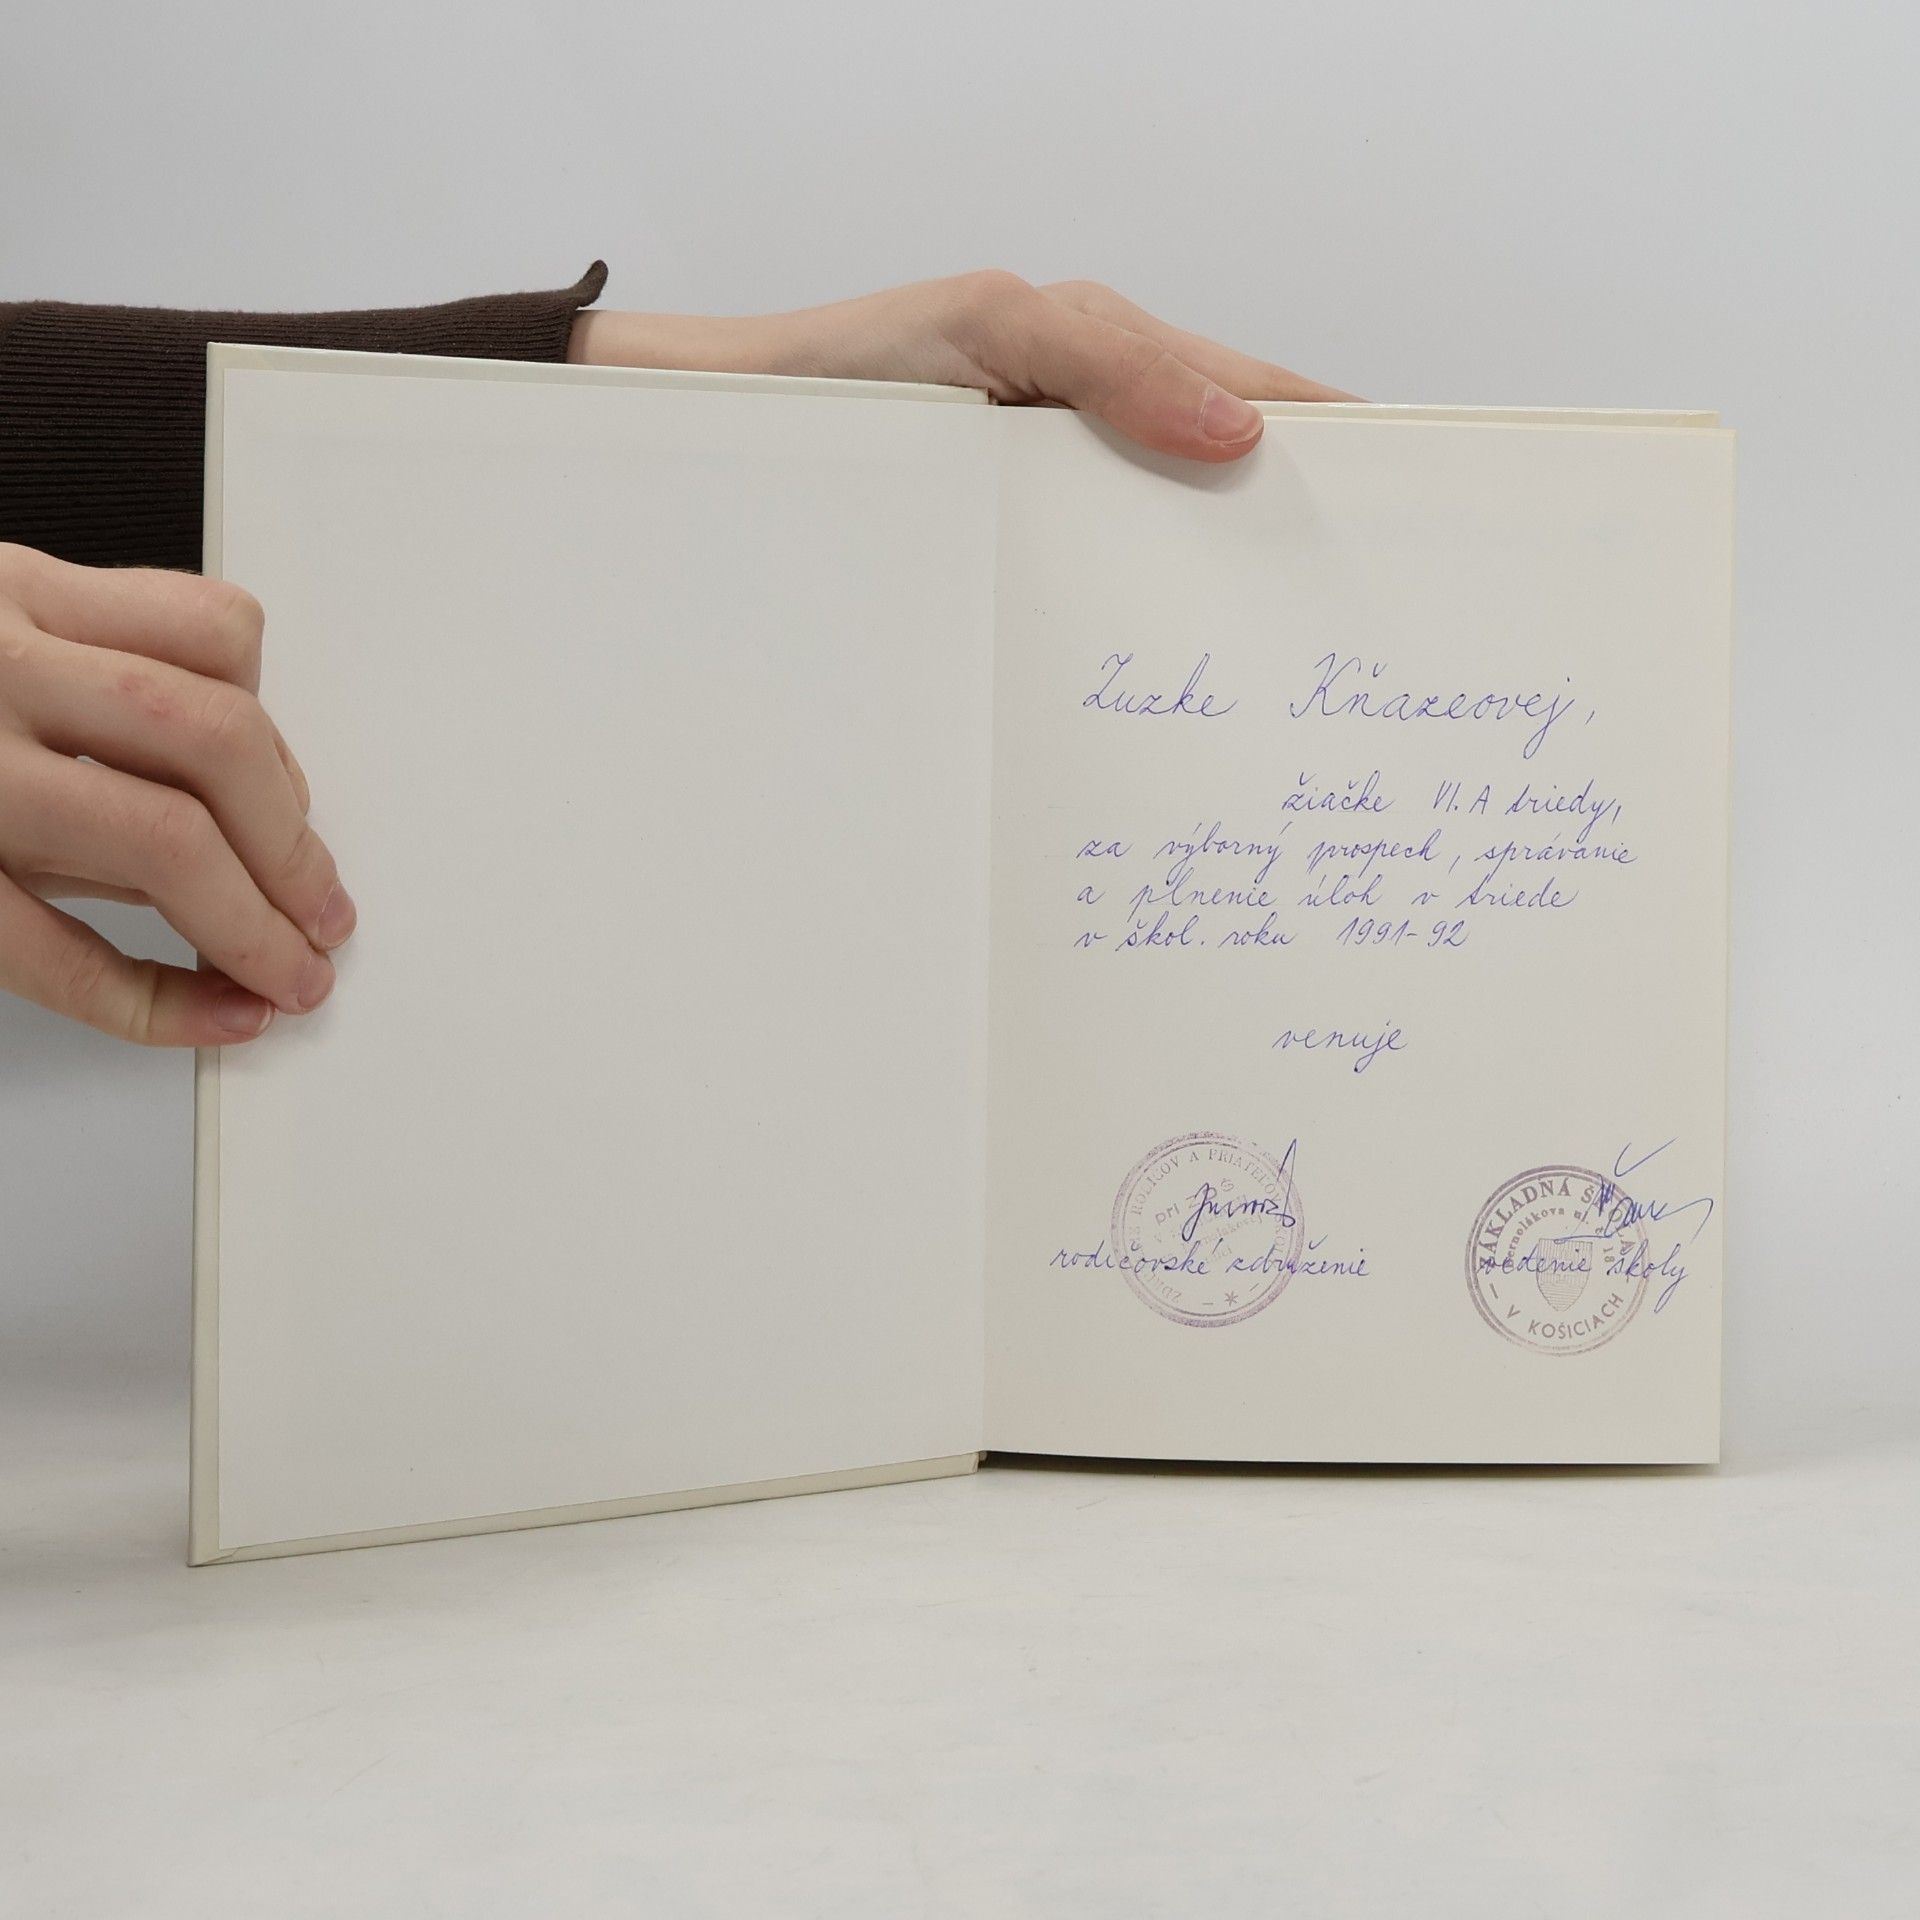 Zuzke Kňazeovej,
žiačke VI. A triedy,
za výborný prospech, správanie
a plnenie úloh v triede
v škol. roku 1991-92
venuje
rodičovské združenie
vedenie školy
RODIČOV A PRIATEĽOV
pri
ZÁKLADNÁ ŠKOLA
Bernolákova ul.
V KOŠICIACH